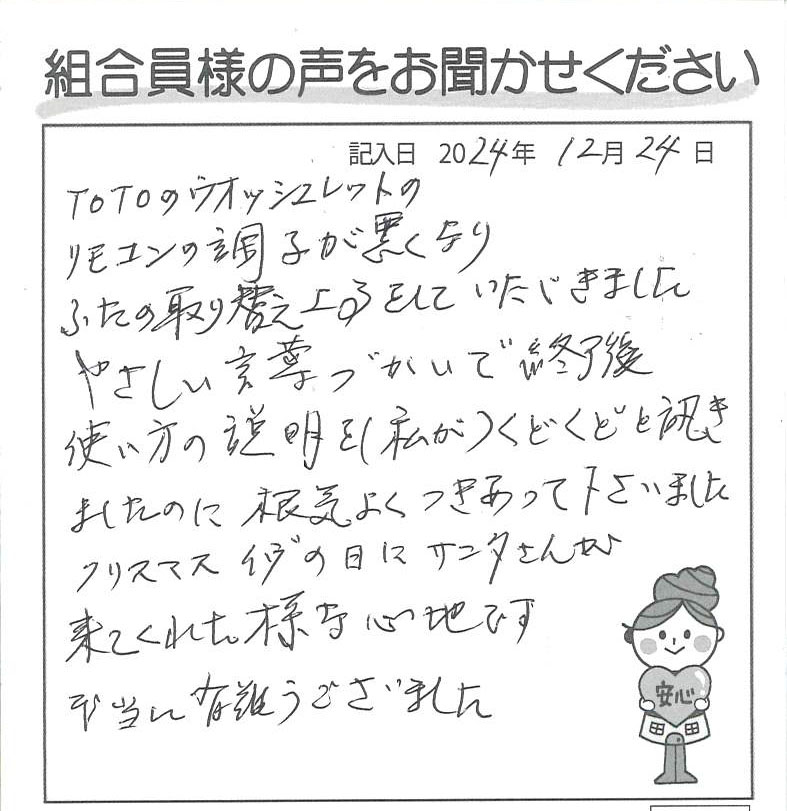 組合員様の声をお聞かせください
記入日 2024年 12月 24日
TOTOのウオッシュレットの
リモコンの調子が悪くなり
ふたの取り替え工事をして いただきました
やさしい言葉づかいで終了後
使い方の説明を(私が)くどくどと訊き
ましたのに 根気よく つきあって下さいました
クリスマス イヴの日に サンタさんが
来てくれた様な心地です
本当に有難うございました
安心